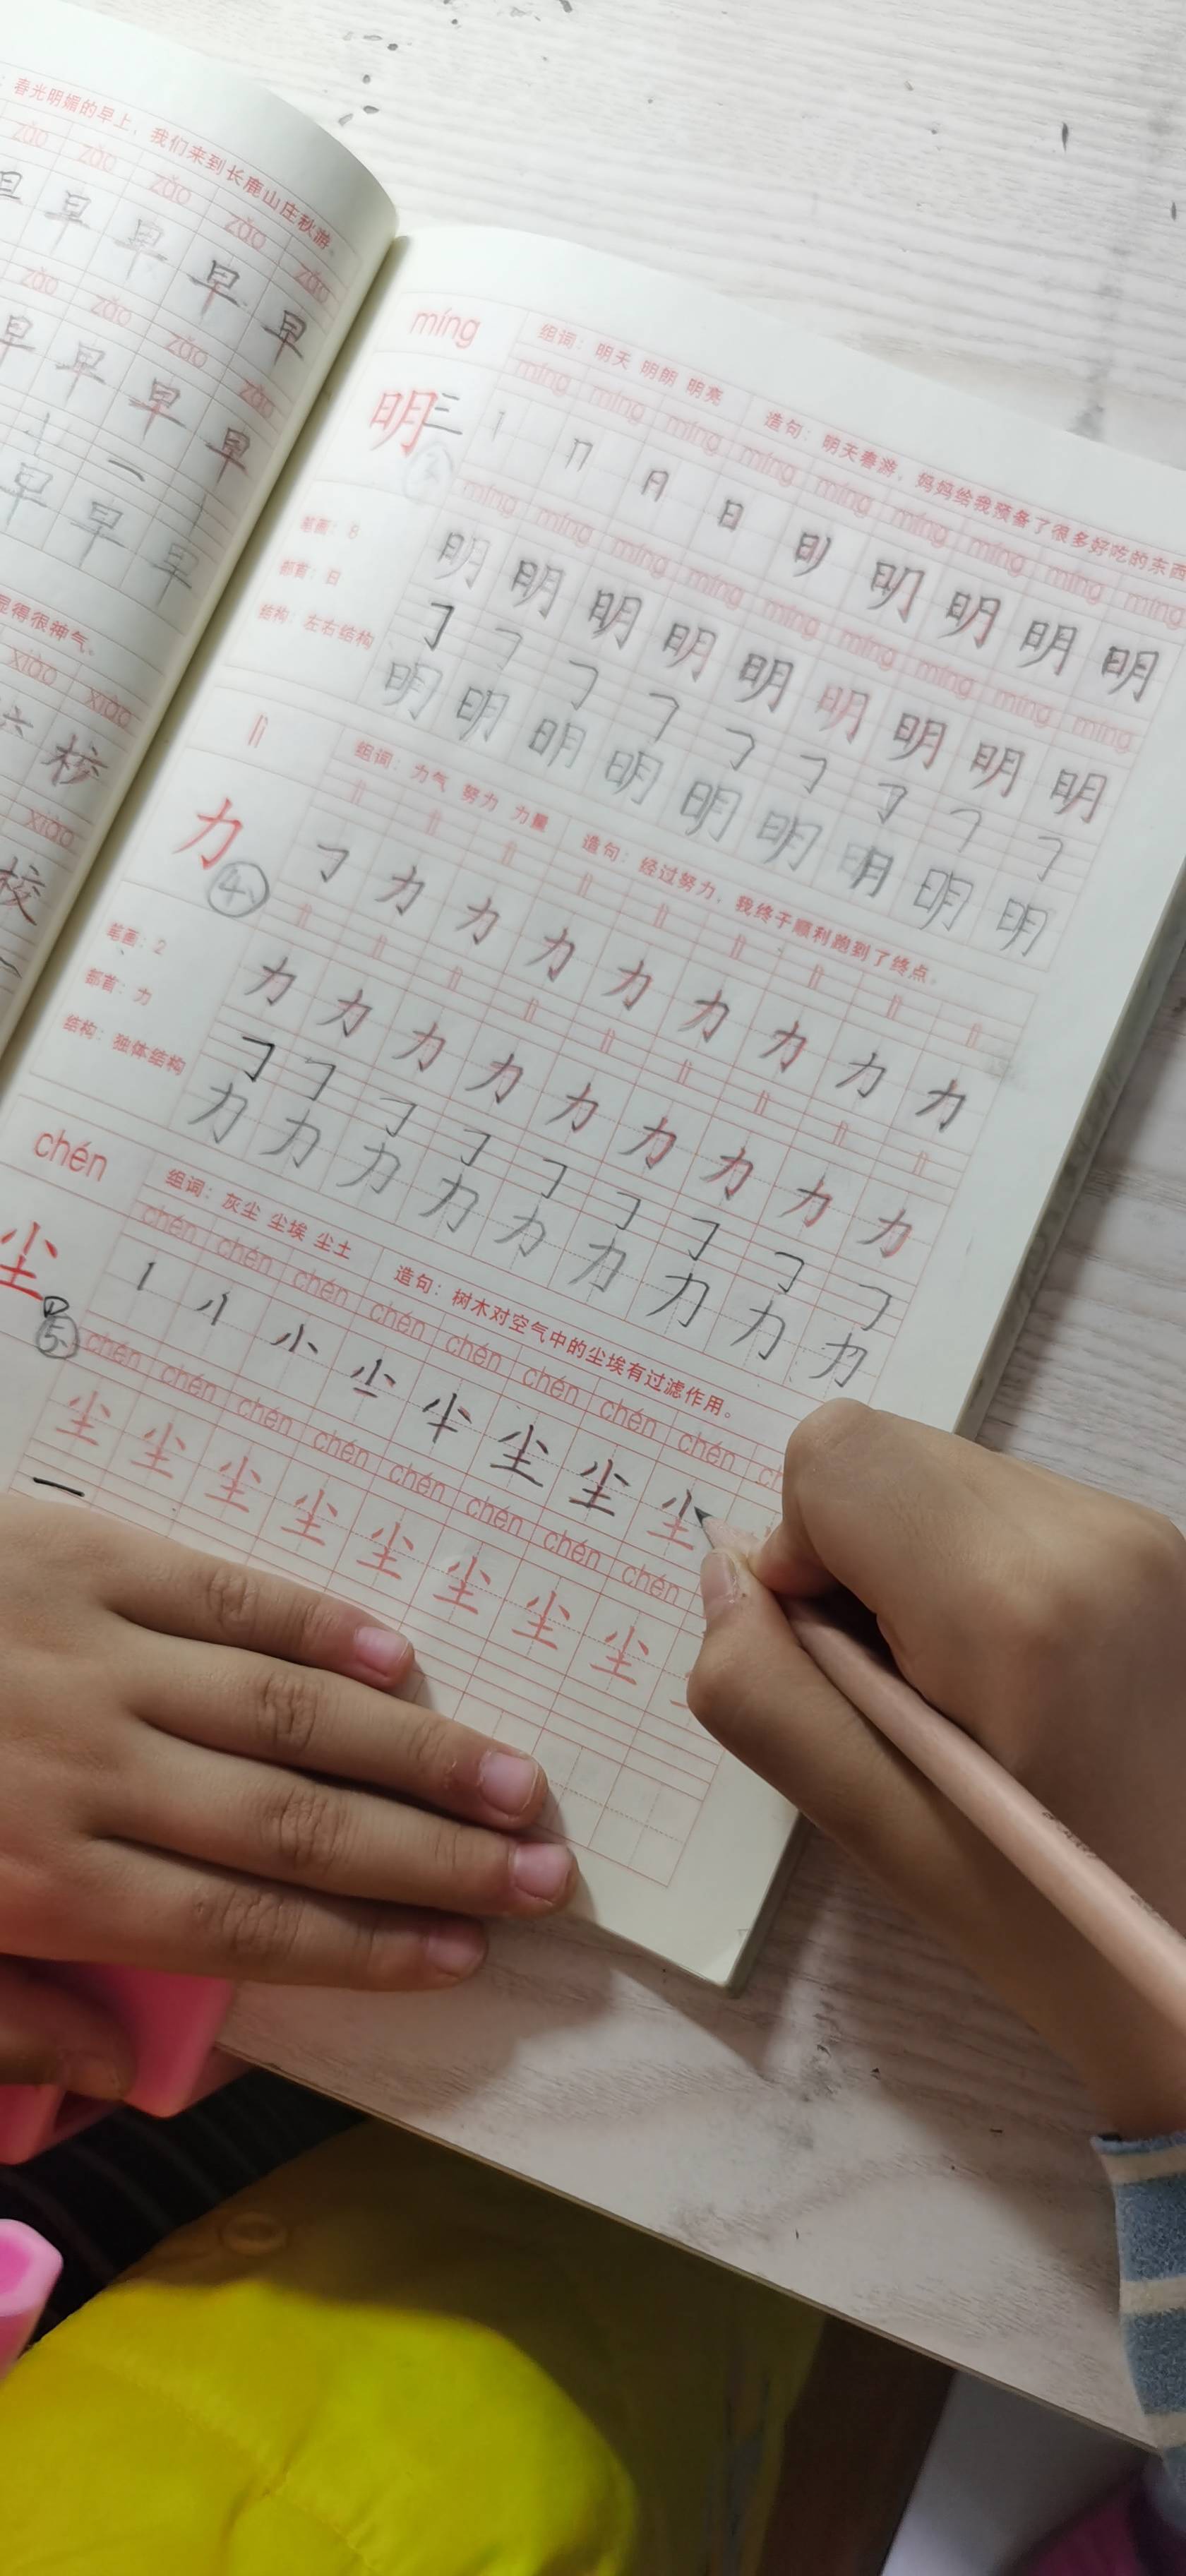 春光明媚的早上，我们来到长鹿山庄秋游。
zǎo zǎo zǎo zǎo zǎo
早 早 早 早
zǎo zǎo zǎo zǎo
早 早 早 早
早 早 早
显得很神气。
xiào xiào
校
xiào
校
míng
组词：明天 明朗 明亮 造句：明天春游，妈妈给我预备了很多好吃的东西
míng míng míng míng míng míng míng míng míng
明 三
丨 冂 月 日 明 明 明
míng míng míng míng míng míng míng míng míng
笔画：8
明 明 明 明 明 明 明 明 明
部首：日
㇆ ㇆ ㇆ ㇆ ㇆ ㇆ ㇆ ㇆ ㇆
结构：左右结构
明 明 明 明 明 明 明 明 明
lì
组词：力气 努力 力量 造句：经过努力，我终于顺利跑到了终点。
lì lì lì lì lì lì lì lì lì
力 4、
㇆ 力 力 力 力 力 力 力 力
lì lì lì lì lì lì lì lì lì
笔画：2
力 力 力 力 力 力 力 力 力
部首：力
㇆ ㇆ ㇆ ㇆ ㇆ ㇆ ㇆ ㇆ ㇆
结构：独体结构
力 力 力 力 力 力 力 力 力
chén
组词：灰尘 尘埃 尘土 造句：树木对空气中的尘埃有过滤作用。
chén chén chén chén chén chén chén chén
尘 5、
亅 小 尘 尘 尘
chén chén chén chén chén chén chén chén
尘 尘 尘 尘 尘 尘 尘 尘
一